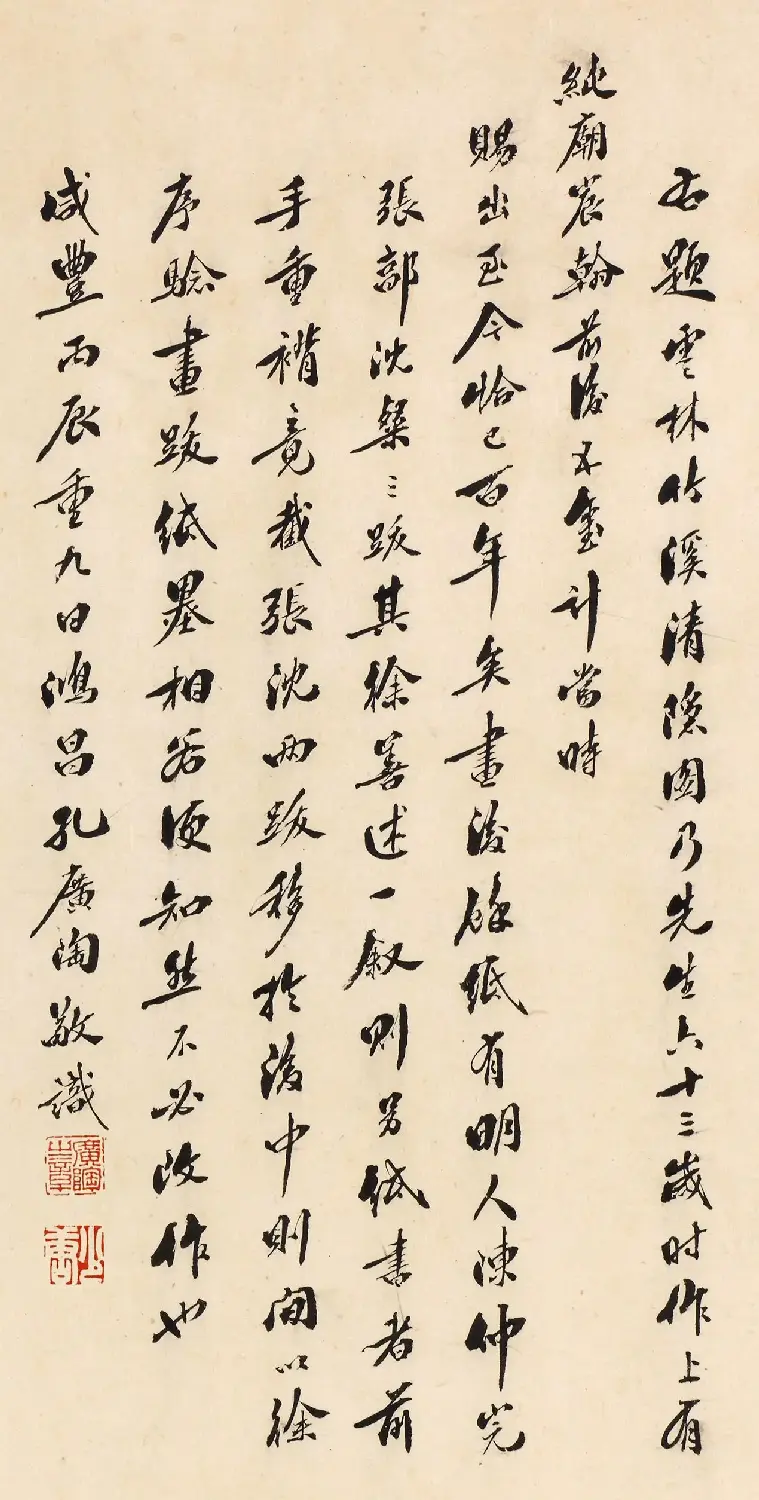 右題雲林竹溪清隱圖乃先生六十三歲时作上有
純廟宸翰前後五璽計當時
賜出至今恰已百年矣畫後餘紙有明人陳仲完
張部沈粲三跋其徐善述一叙則另紙書者前
手重褙竟截張沈兩跋移於後中則间以徐
序騐畫跋紙墨相若便知然不必改作也
咸豐丙辰重九日鴻昌孔廣陶敬識
廣陶